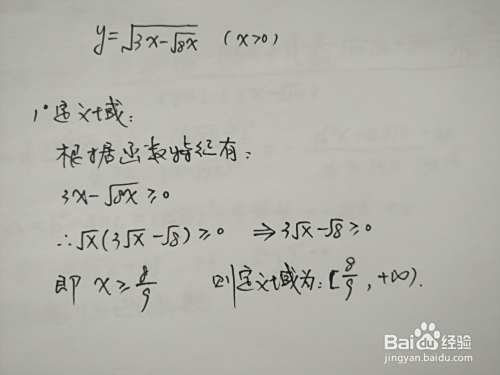 y=√(3x-√(8x)) (x>0)
1°定义域:
根据函数特征有:
3x-√(8x)≥0
∴√x(3√x-√8)≥0 ⇒3√x-√8≥0
即 x≥8/9 则定义域为:[8/9,+∞).
Baidu经验
jingyan.baidu.com